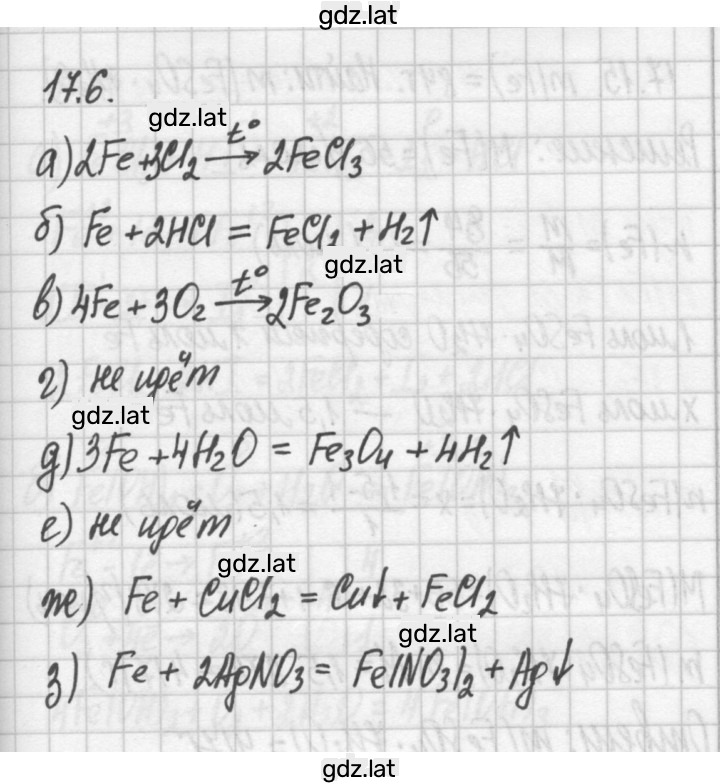 gdz.lat
17.6.
gdz.lat
а) 2Fe+3Cl₂ —t°→ 2FeCl₃
б) Fe + 2HCl = FeCl₂ + H₂↑
gdz.lat
в) 4Fe + 3O₂ —t°→ 2Fe₂O₃
г) не идёт
gdz.lat
д) 3Fe + 4H₂O = Fe₃O₄ + 4H₂↑
е) не идёт
gdz.lat
ж) Fe + CuCl₂ = Cu↓ + FeCl₂
gdz.lat
з) Fe + 2AgNO₃ = Fe(NO₃)₂ + Ag↓
gdz.lat